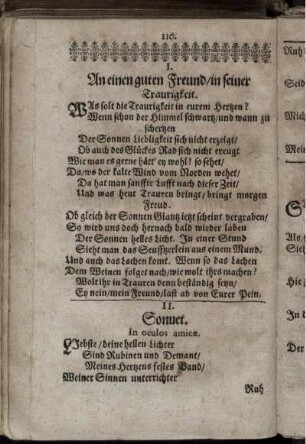 110.
I.
An einen guten Freund/in seiner
Traurigkeit.
WAs solt die Traurigkeit in eurem Hertzen?
Wenn schon der Himmel schwartz/und wann zu
schertzen
Der Sonnen Liebligkeit sich nicht erzelgt/
Ob auch des Glückes Rad sich nicht ereugt
Wie man es gerne hätt' ey wohl! so sehet/
Da/wo der kalte Wind vom Norden wehet/
Da hat man sanffte Lufft nach dieser Zeit/
Und was heut Trauren bringt/bringt morgen
Freud.
Ob gleich der Sonnen Glantz jetzt scheint vergraben/
So wird uns doch hernach bald wieder laben
Der Sonnen helles Licht. In einer Stund
Sieht man das Seufftzerlein aus einem Mund.
Und auch das Lachen komt. Wenn so das Lachen
Dem Weinen folget nach/wie wolt ihrs machen?
Wolt ihr in Trauren denn beständig seyn/
Ey nein/mein Freund/last ab von Eurer Pein.
II.
Sonnet.
In oculos amicæ.
LIebste/deine hellen Lichter
Sind Rubinen und Demant/
Meines Hertzens festes Band/
Meiner Sinnen unterrichter
Ruh
Ruh
Seid
Mich
Meine
Als
Sieh
In de
Der